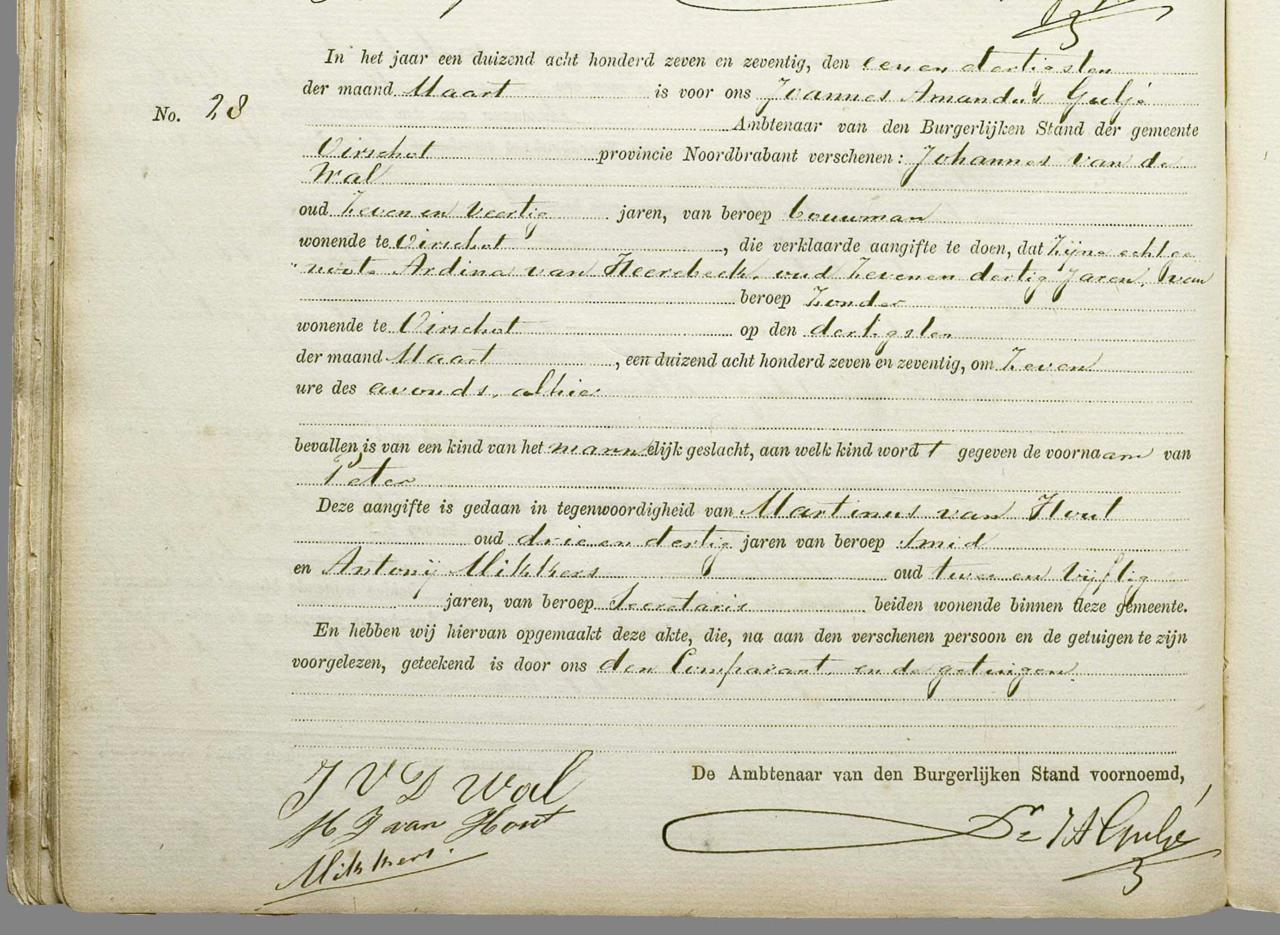 In het jaar een duizend acht honderd zeven en zeventig, den een en dertigsten
der maand Maart is voor ons Joannes Amandus Guljé
No. 28
Ambtenaar van den Burgerlijken Stand der gemeente
Oirschot provincie Noordbrabant verschenen: Johannes van de
Wal
oud Zeven en Veertig jaren, van beroep bouwman
wonende te Oirschot, die verklaarde aangifte te doen, dat Zijne echtge
noote Ardina van Heerebeek, oud Zeven en dertig Jaren, van
beroep Zonder
wonende te Oirschot op den dertigsten
der maand Maart, een duizend acht honderd zeven en zeventig, om Zeven
ure des avonds, alhier
bevallen is van een kind van het mannelijk geslacht, aan welk kind wordt gegeven de voornaam van
Peter
Deze aangifte is gedaan in tegenwoordigheid van Martinus van Hout
oud drie en dertig jaren van beroep Smid
en Antonij Mikkers oud twee en Vijftig
jaren, van beroep Secretaris beiden wonende binnen deze gemeente.
En hebben wij hiervan opgemaakt deze akte, die, na aan den verschenen persoon en de getuigen te zijn
voorgelezen, geteekend is door ons den Comparant en de getuigen
De Ambtenaar van den Burgerlijken Stand voornoemd,
J V D Wal
M J van Hout
Mikkers.
J A Guljé